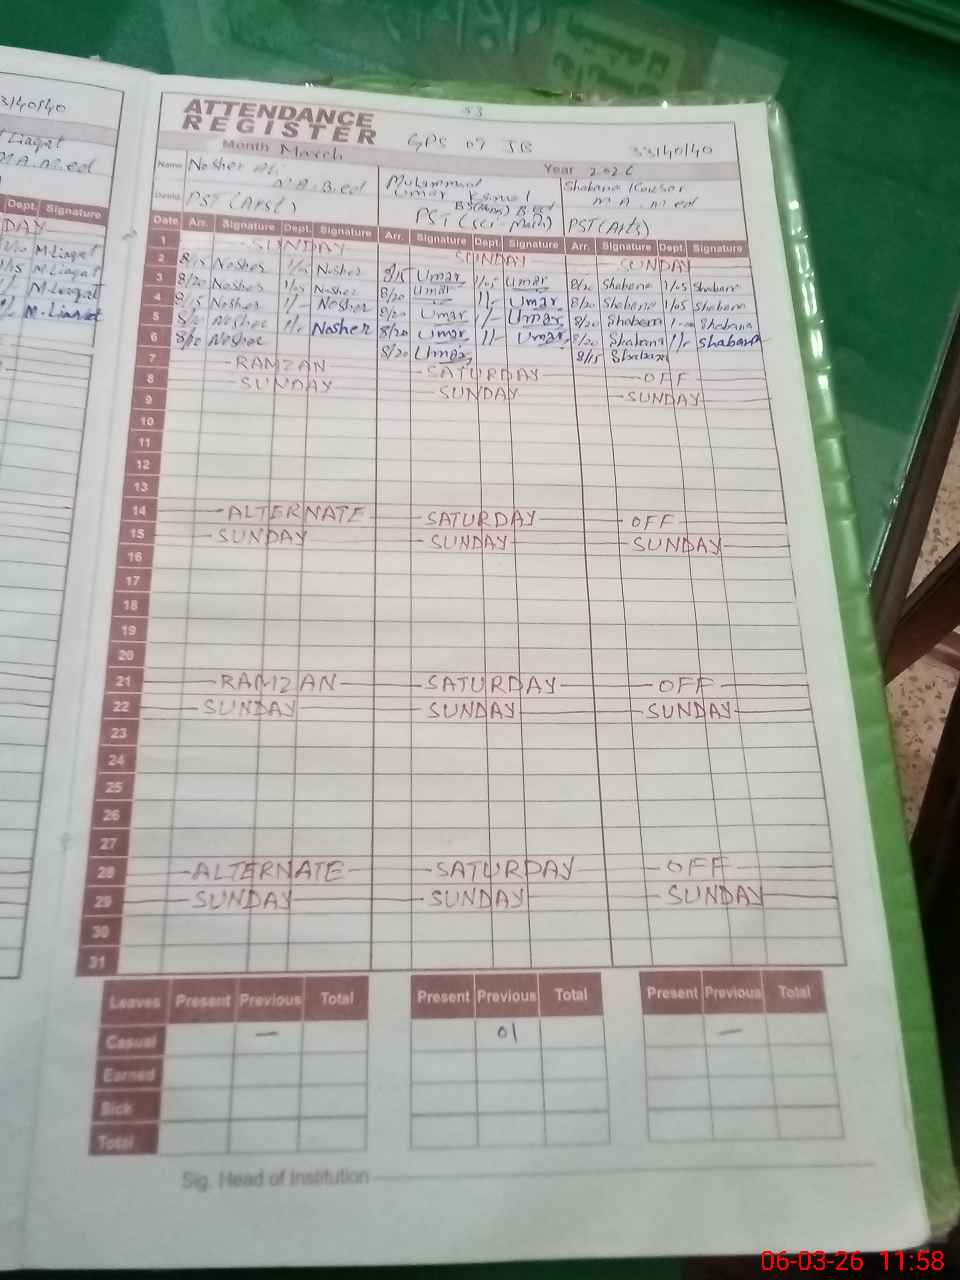 53
33/40/40
ATTENDANCE
REGISTER
GPS 07 JB
33/40/40
Month March
Year 2026
M.A.M.ed
Name Nosher Ali
M.A.B.ed
Muhammad
Umar
Shabana Kousar
M.A.M.ed
PST (Arst)
PST (Sci-Math)
PST (Arts)
Dept. Signature
Date Arr. Signature Dept. Signature Arr. Signature Dept. Signature Arr. Signature Dept. Signature
1 SUNDAY SUNDAY SUNDAY
2 8/15 Nosher 1/15 Nosher 8/15 Umar 1/05 Umar 8/20 Shabana 1/05 Shabana
3 8/20 Nosher 1/05 Nosher 8/20 Umar 1/- Umar 8/20 Shabana 1/05 Shabana
4 8/15 Nosher 1/- Nosher 8/20 Umar 1/- Umar 8/20 Shabana Shabana
5 8/20 Nosher 1/- Nosher 8/20 Umar 1/- Umar 8/20 Shabana 1/- Shabana
6 Nosher 8/20 Umar 8/15 Shabana
7 RAMZAN SATURDAY OFF
8 SUNDAY SUNDAY SUNDAY
9
10
11
12
13
14 ALTERNATE SATURDAY OFF
15 SUNDAY SUNDAY SUNDAY
16
17
18
19
20
21 RAMZAN SATURDAY OFF
22 SUNDAY SUNDAY SUNDAY
23
24
25
26
27
28 ALTERNATE SATURDAY OFF
29 SUNDAY SUNDAY SUNDAY
30
31
M.Liaqat
M.Liaqat
M.Liaqat
M.Liaqat
Leaves Present Previous Total Present Previous Total Present Previous Total
Casual — 01 —
Earned
Sick
Total
Sig. Head of Institution
06-03-26 11:58